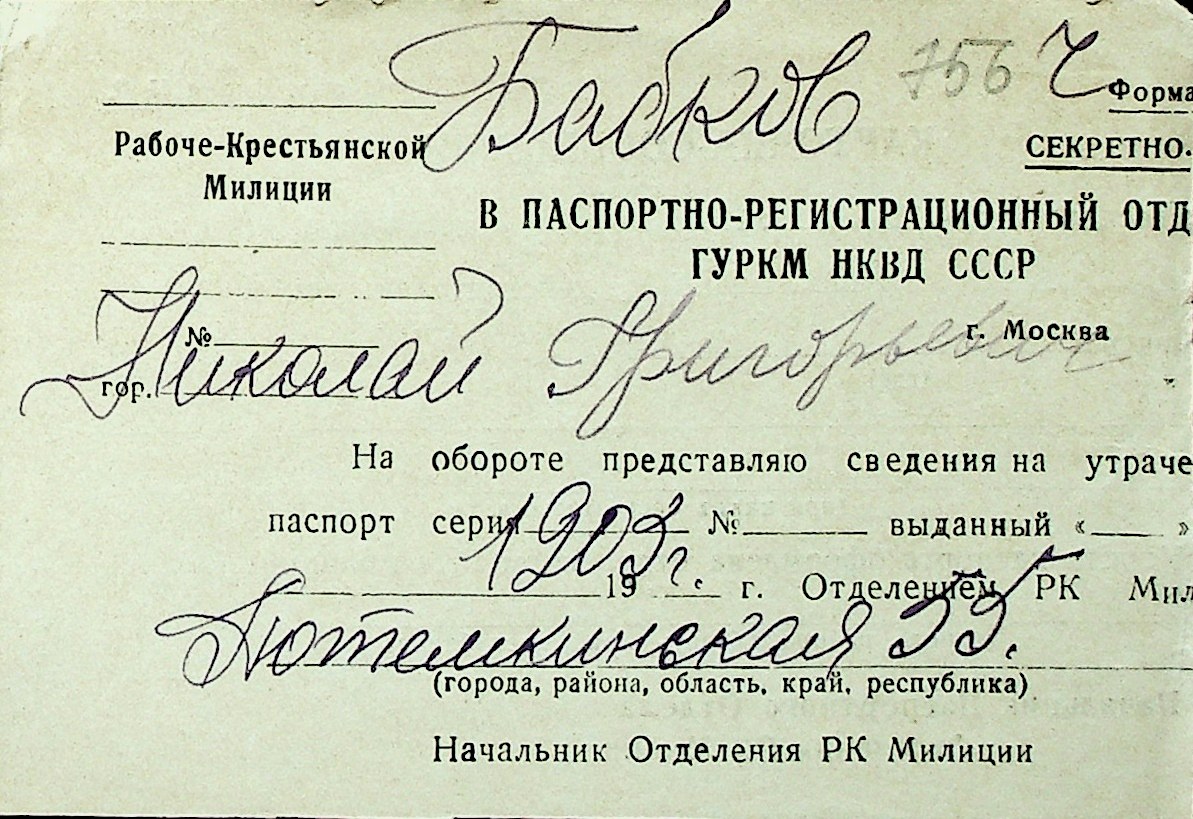 Бабков 756 Ч Форма
Рабоче-Крестьянской СЕКРЕТНО.
Милиции
В ПАСПОРТНО-РЕГИСТРАЦИОННЫЙ ОТД
ГУРКМ НКВД СССР
№ г. Москва
гор. Николай Григорьевич
На обороте представляю сведения на утраче
паспорт серия № выданный « »
1903 г.
19 г. Отделением РК Мил
Потемкинская 55.
(города, района, область, край, республика)
Начальник Отделения РК Милиции